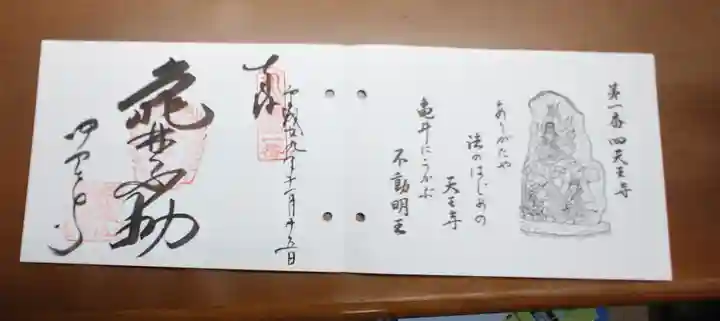 第一番 四天王寺
ありがたや
法のはじめの
天王寺
亀井にうかぶ
不動明王
奉拝
平成廿九年十一月十五日
亀井不動
四天王寺